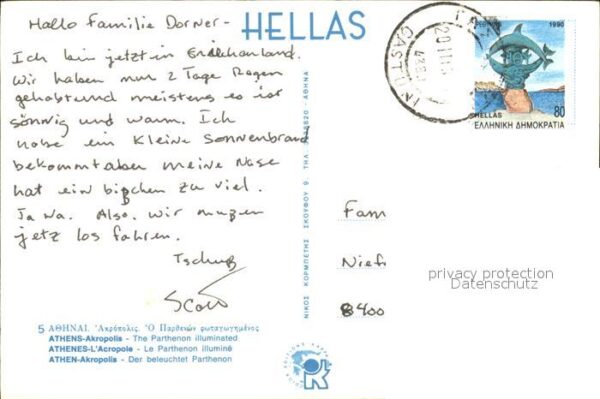 Hallo Familie Dorner -
HELLAS
Ich bin jetzt in Griechenland.
Wir haben nur 2 Tage Regen
gehabt und meistens es ist
sonnig und warm. Ich
habe ein Kleine Sonnenbrand
bekommt aber meine Nase
hat ein bißchen zu viel.
Ja Na. Also. Wir mußen
jetz los fahren.
Tschuß
Scott
1990
HELLAS
80
ΕΛΛΗΝΙΚΗ ΔΗΜΟΚΡΑΤΙΑ
ΝΙΚΟΣ ΚΟΡΜΠΕΤΗΣ ΣΚΟΥΦΟΥ 9, ΤΗΛ. ΑΘΗΝΑ
Fam
Niefe
8400
privacy protection
Datenschutz
5 ΑΘΗΝΑΙ. Ἀκρόπολις. Ὁ Παρθενών φωταγωγημένος
ATHENS-Akropolis - The Parthenon illuminated
ATHENES-L'Acropole - Le Parthenon illuminé
ATHEN-Akropolis - Der beleuchtet Parthenon